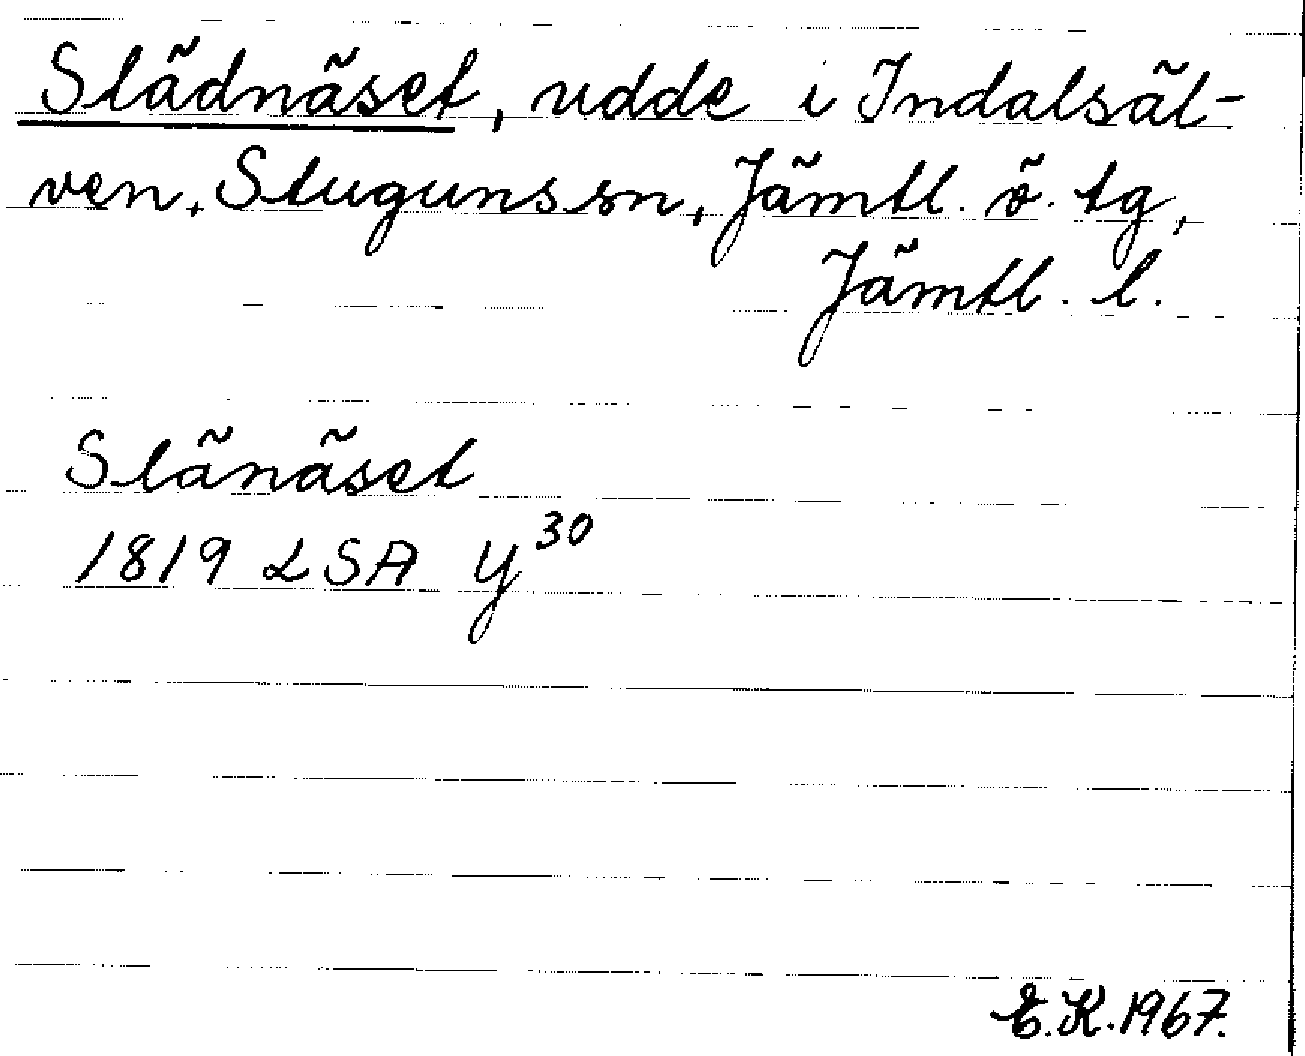 Slädnäset, udde i Indalsäl-
ven, Stuguns sn, Jämtl. ö. tg,
Jämtl. l.
Slänäset
1819 LSA Y 30
E.K. 1967.